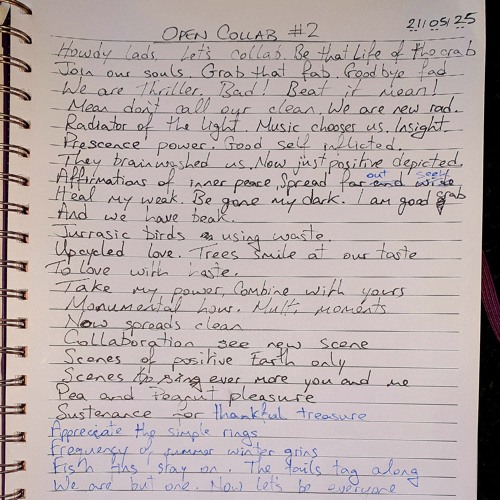 21/05/25
OPEN COLLAB #2
Howdy lads. Let's collab. Be that life of the crab
Join our souls. Grab that fab. Goodbye fad
We are Thriller. Bad! Beat it mean!
Mean don't call our clean. We are new rad.
Radiator of the light. Music chooses us. Insight
Prescence power. Good self inflicted.
They brainwashed us. Now just positive depicted.
Affirmations of inner peace, Spread far out and seek wise
Heal my weak. Be gone my dark. I am good grab
And we have beak.
Jurrasic birds using waste
Upcycled love. Trees smile at our taste
To love with haste.
Take my power, Combine with yours
Monumental hour. Multi moments
Now spreads clean
Collaboration see new scene
Scenes of positive Earth only
Scenes sing ever more you and me
Pea and Peanut pleasure
Sustenance for thankful treasure
Appreciate the simple rings
Frequency of summer winter grins
Fish fins stay on. The tails tag along
We are but one. Now let's be everyone